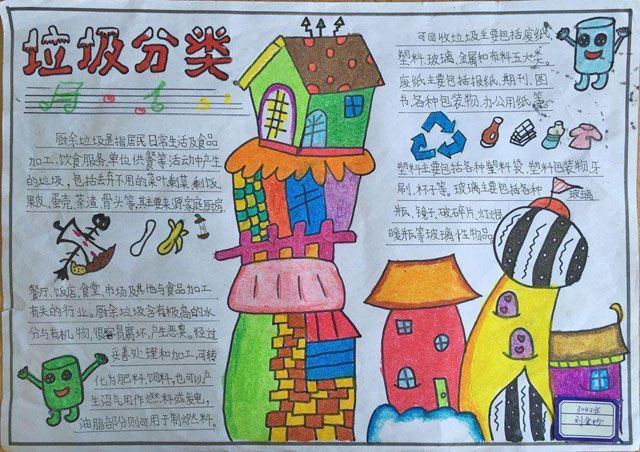 垃圾分类
厨余垃圾是指居民日常生活及食品
加工、饮食服务、单位供餐等活动中产生
的垃圾，包括丢弃不用的菜叶、剩菜、剩饭、
果皮、蛋壳、茶渣、骨头等，其主要来源家庭厨房、
餐厅、饭店、食堂、市场及其他与食品加工
有关的行业。厨余垃圾含有极高的水
分与有机物，很容易腐坏，产生恶臭。经过
妥善处理和加工，可转
化为肥料、饲料，也可以产
生沼气用作燃料或发电，
油脂部分则可用于制燃料。
可回收垃圾主要包括废纸、
塑料、玻璃、金属和布料五大类。
废纸主要包括报纸、期刊、图
书、各种包装物、办公用纸等
塑料主要包括各种塑料袋、塑料包装物、牙
刷、杯子等，玻璃主要包括各种
玻璃
瓶、镜子、破碎片、灯组
暖瓶等玻璃性物品
304班